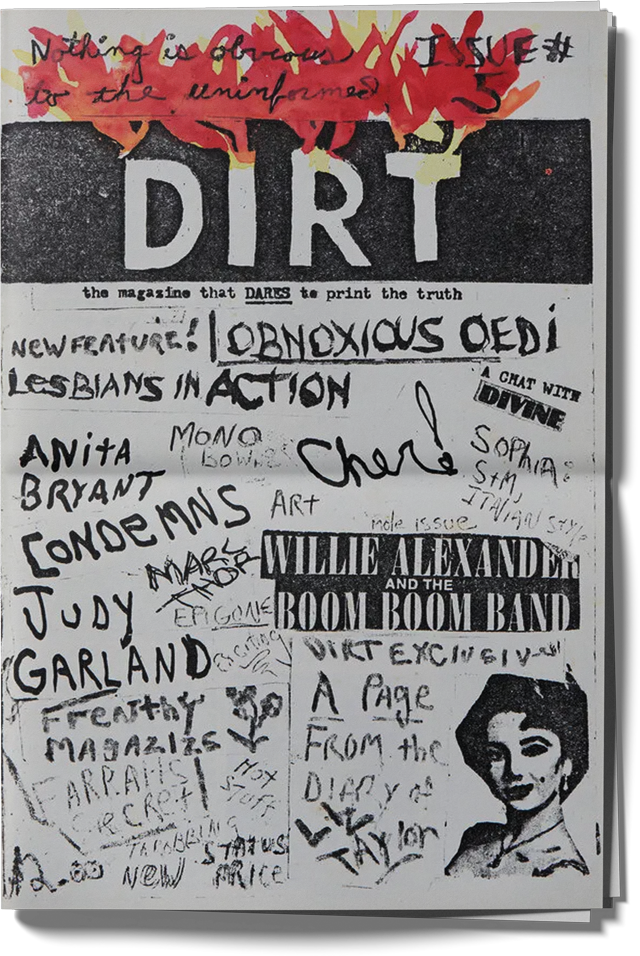 Nothing is obvious
to the uninformed
ISSUE #
5
DIRT
the magazine that DARES to print the truth
NEW FEATURE! OBNOXIOUS OEDi
LESBIANS IN ACTION
A CHAT WITH
DIVINE
ANiTA
BRYANT
CONDEMNS
JUDY
GARLAND
MONO
Cher!
SOPHIA:
S+M
ITALIAN STYLE
ART
mole issue
MARC
THOR
EPIGONE
EXCITING
WILLIE ALEXANDER
AND THE
BOOM BOOM BAND
DIRT EXCLUSIVE
A Page
FROM the
DIARY of
LIZ
TAYlor
MAGAZIZS
HOT
STUFF
THROBBING
STATUS
NEW PRICE
$2.00